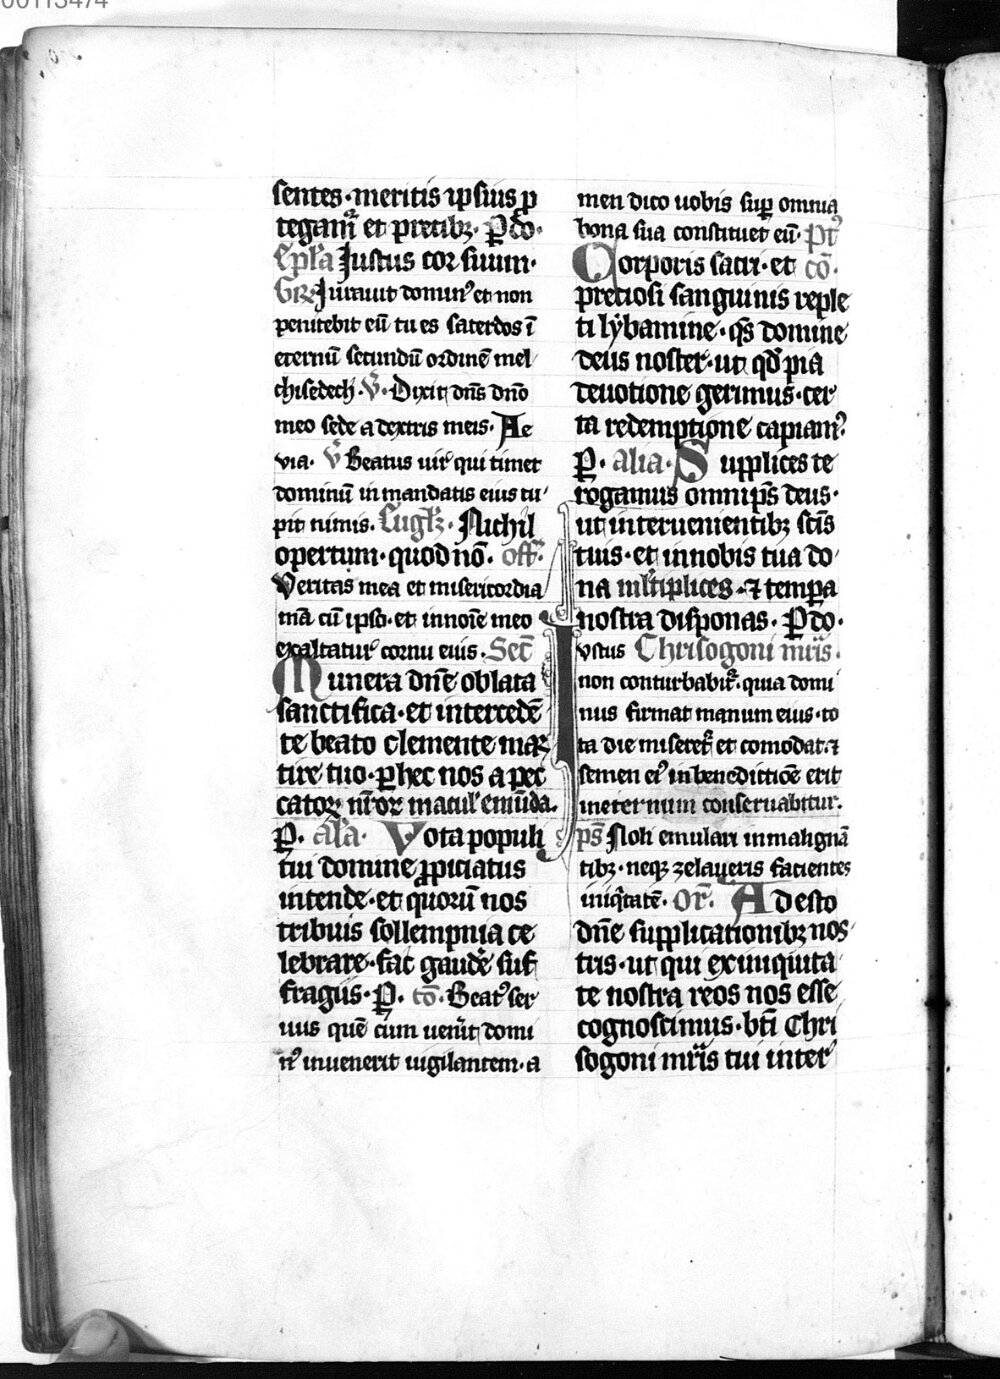 00113474
sentes · meritis ipsius p
tegam᷑ et precibꝫ · P̲ do·
Epl̄a Justus cor suum ·
Gr̄ Jurauit dominꝰ et non
penitebit eū tu es sacerdos ī
eternū secundū ordinē mel
chisedech · V̄ · Dixit dn̄s dn̄o
meo sede a dextris meis · Ae
via · V̄ Beatus uir qui timet
dominū in mandatis eius cu
pit nimis. Eugl̄ꝫ · Nichil
opertum · quod nō · off̄ ·
Veritas mea et misericordia
mā cū ipso · et in noīe meo
exaltatur cornu eius · Sec̄
Munera dn̄e oblata
sanctifica · et intercedē
te beato clemente mar
tire tuo · ꝑ hec nos a pec
catoꝝ nr̄oꝝ macul᾽ emūda ·
P̲ · al̄a · Vota populi
tui domine ꝓpiciatus
intende · et quorū nos
tribuis sollempnia ce
lebrare · fac gaudē suf
fragiis · P̲ · cō · Beatꝰ ser
uus quē cum uen̄it domi
nꝰ inuenerit uigilantem · a
men dico uobis suꝑ omnia
bona sua constituet eū · Pr̄
Corporis sacri · et cō ·
preciosi sanguinis reple
ti lybamine · qs̄ domine
deus noster · ut qd̄ pia
deuotione gerimus · cer
ta redemptione capiam᷑
P̲ · alia · Supplices te
rogamus omnip̄s deus ·
ut interuenientibꝫ sc̄is
tuis · et in nobis tua do
na ml̄tiplices · ⁊ tempa
nostra disponas · P̲ do ·
Justus Chrisogoni mr̄is ·
non conturbabit᷑ · quia domi
nus firmat manum eius · to
ta die miseret᷑ et comodat · ⁊
semen eiꝰ in benedictiōe erit
in eternum conseruabitur ·
ps̄ Noli emulari in malignā
tibꝫ · neqꝫ zelaueris facientes
iniq̄tatē · or̄ · Adesto
dn̄e supplicationibꝫ nos
tris · ut qui ex iniquita
te nostra reos nos esse
cognoscimus · bt̄i Chri
sogoni mr̄is tui inter